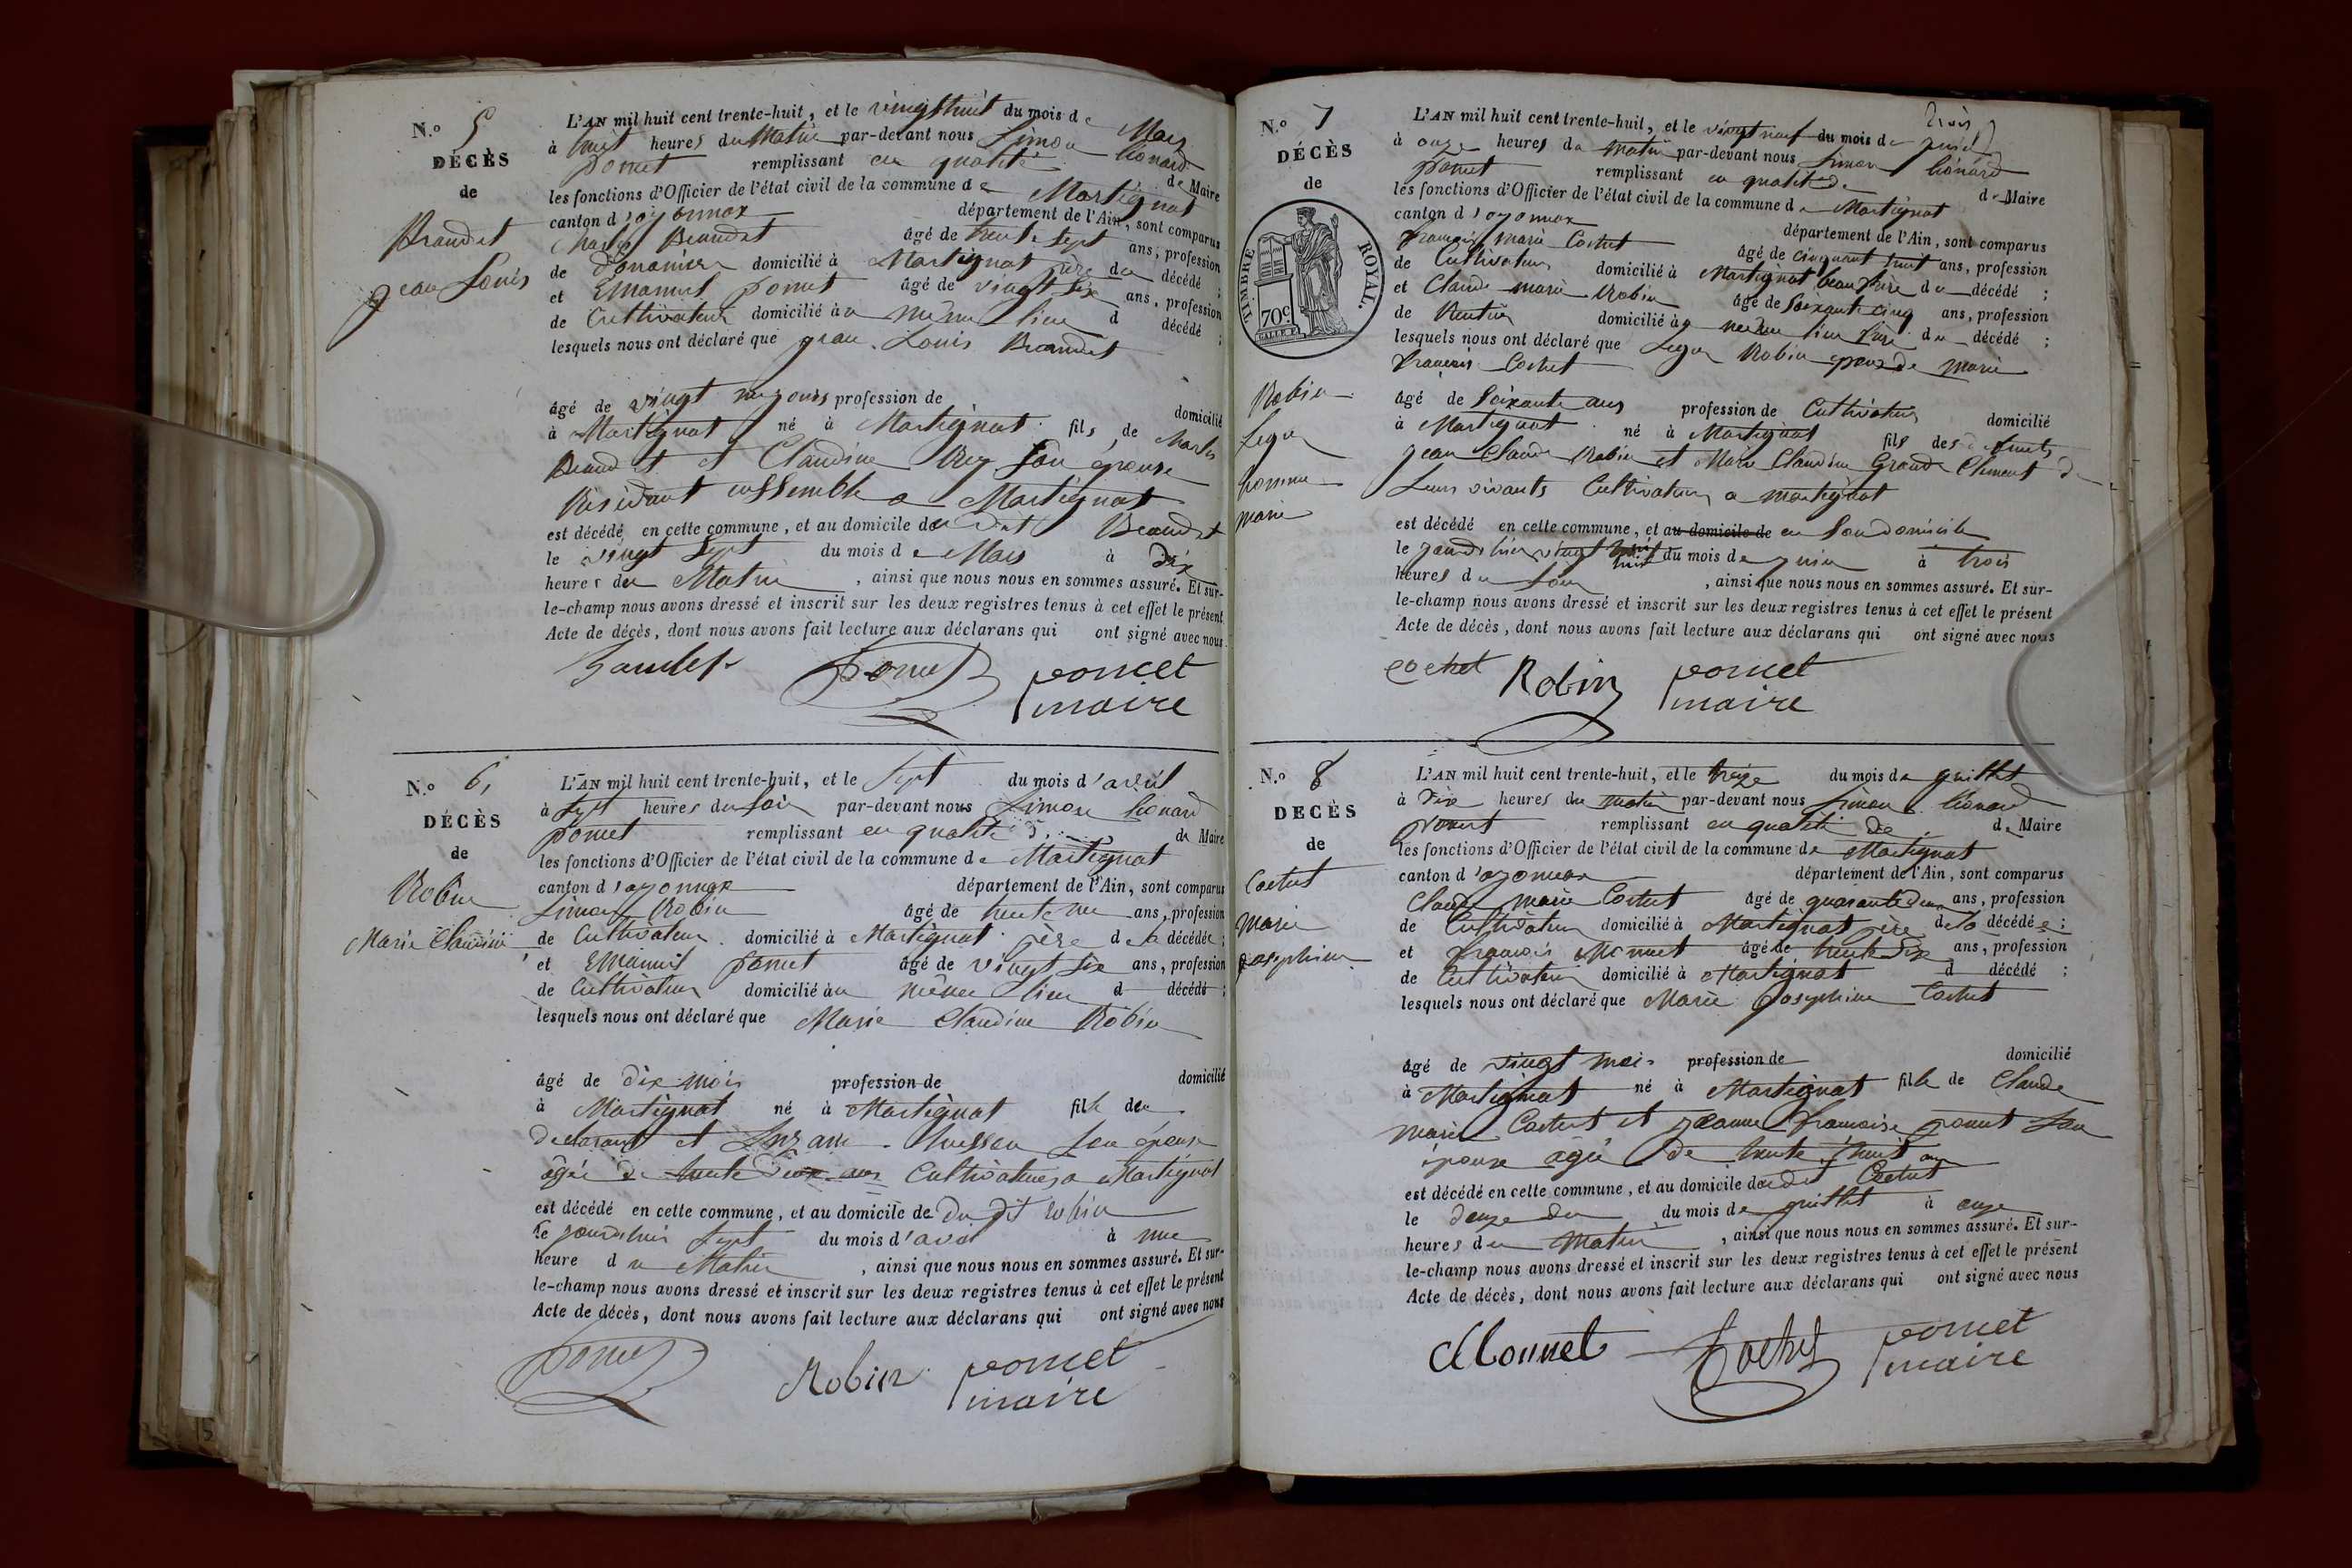 N.o 5
DÉCÈS
de
Beaudet
jean Louis
L'AN mil huit cent trente-huit, et le vingt huit du mois de Mars
à huit heures du Matin par-devant nous Simon Léonard
poncet remplissant en qualité de Maire
les fonctions d'Officier de l'état civil de la commune de Martignat
canton d'oyonnax département de l'Ain, sont comparus
Charles Beaudet âgé de trente sept ans, profession
de domicilié à Martignat père du décédé ;
et Emanuel poncet âgé de vingt six ans, profession
de Cultivateur domicilié au même lieu d décédé ;
lesquels nous ont déclaré que jean Louis Beaudet
âgé de vingt jours profession de domicilié
à Martignat né à Martignat fils de Charles
Beaudet et Claudine Rey son épouse
Résidant enssemble a Martignat
est décédé en cette commune, et au domicile du dit Beaudet
le vingt sept du mois de Mars à dix
heures du Matin , ainsi que nous nous en sommes assuré. Et sur-
le-champ nous avons dressé et inscrit sur les deux registres tenus à cet effet le présent
Acte de décès, dont nous avons fait lecture aux déclarans qui ont signé avec nous
poncet poncet
maire
N.o 6,
DÉCÈS
de
Robin
Marie Claudine
L'AN mil huit cent trente-huit, et le sept du mois d'avril
à sept heures du soir par-devant nous Simon Léonard
poncet remplissant en qualité de Maire
les fonctions d'Officier de l'état civil de la commune de Martignat
canton d'oyonnax département de l'Ain, sont comparus
Simon Robin âgé de trente ans, profession
de Cultivateur domicilié à Martignat père de la décédée ;
et Emanuel poncet âgé de vingt six ans, profession
de Cultivateur domicilié au même lieu d décédé ;
lesquels nous ont déclaré que Marie Claudine Robin
âgé de dix mois profession de domicilié
à Martignat né à Martignat fille du
declarant et Suzanne son épouse
âgée de trente deux ans Cultivateurs a Martignat
est décédé en cette commune, et au domicile de du dit Robin
le jourdhui sept du mois d'avril à une
heure du Matin , ainsi que nous nous en sommes assuré. Et sur-
le-champ nous avons dressé et inscrit sur les deux registres tenus à cet effet le présent
Acte de décès, dont nous avons fait lecture aux déclarans qui ont signé avec nous
poncet Robin poncet
maire
N.o 7
DÉCÈS
de
TIMBRE ROYAL.
70c.
Robin
Leger
homme
marie
trois
L'AN mil huit cent trente-huit, et le vingt neuf du mois de juin
à onze heures du matin par-devant nous Simon Léonard
poncet remplissant en qualité de de Maire
les fonctions d'Officier de l'état civil de la commune de Martignat
canton d'oyonnax département de l'Ain, sont comparus
françois marie Cochet âgé de cinquant huit ans, profession
de Cultivateur domicilié à Martignat beau frère du décédé ;
et Claude marie Robin âgé de soixante cinq ans, profession
de Rentier domicilié au meme lieu frère du décédé ;
lesquels nous ont déclaré que Leger Robin epoux de marie
françoise Cochet
âgé de soixante ans profession de Cultivateur domicilié
à Martignat né à Martignat fils des defunts
jean Claude Robin et Marie Claudine Grand Clement de
Leurs vivants Cultivateurs a martignat
est décédé en cette commune, et au domicile de en son domicile
le du mois de juin à trois
heures du soir , ainsi que nous nous en sommes assuré. Et sur-
le-champ nous avons dressé et inscrit sur les deux registres tenus à cet effet le présent
Acte de décès, dont nous avons fait lecture aux déclarans qui ont signé avec nous
cochet Robin poncet
maire
N.o 8
DECÈS
de
Cochet
Marie
josephine
L'AN mil huit cent trente-huit, et le treize du mois de juillet
à dix heures du matin par-devant nous Simon Léonard
poncet remplissant en qualité de de Maire
les fonctions d'Officier de l'état civil de la commune de Martignat
canton d'oyonnax département de l'Ain, sont comparus
Claude marie Cochet âgé de quarante deux ans, profession
de Cultivateur domicilié à Martignat père de la décédée ;
et françois Monnet âgé de trente six ans, profession
de Cultivateur domicilié à Martignat d décédé ;
lesquels nous ont déclaré que Marie josephine Cochet
âgé de vingt mois profession de domicilié
à Martignat né à Martignat fille de Claude
marie Cochet et jeanne françoise poncet son
épouse agée de trente huit ans
est décédé en cette commune, et au domicile du dit Cochet
le douze du du mois de juillet à onze
heures du Matin , ainsi que nous nous en sommes assuré. Et sur-
le-champ nous avons dressé et inscrit sur les deux registres tenus à cet effet le présent
Acte de décès, dont nous avons fait lecture aux déclarans qui ont signé avec nous
Monnet Cochet poncet
maire